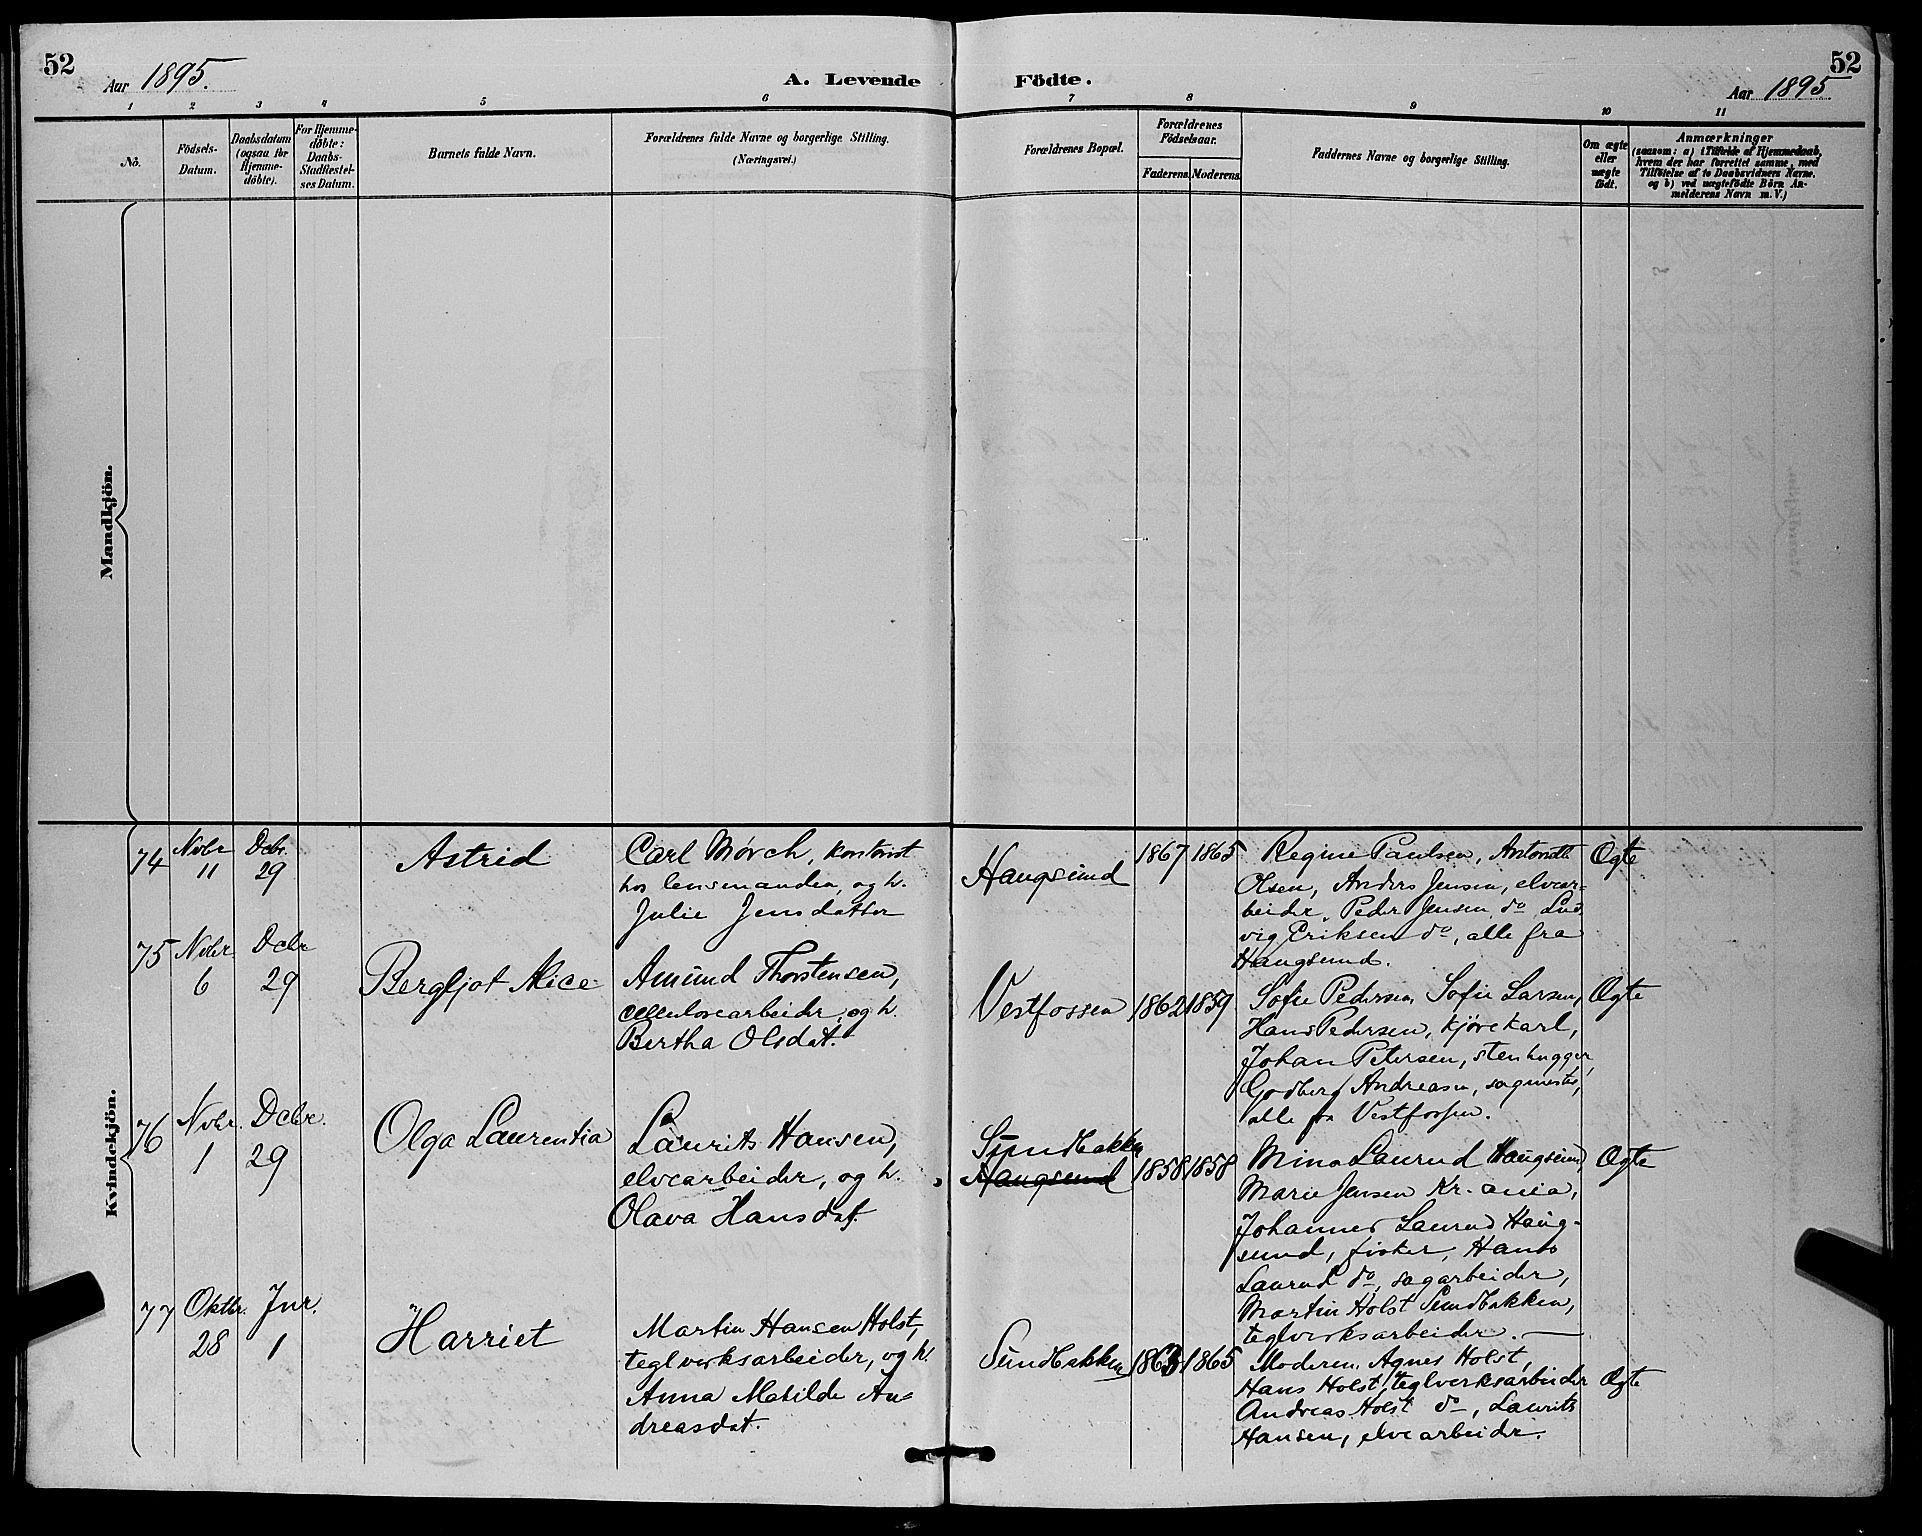 52
Aar 1895.
A. Levende Födte.
Aar 1895
52
1 2 3 4 5 6 7 8 9 10 11
No.
Födsels-
Datum.
Daabsdatum
(ogsaa for
Hjemme-
döbte).
For Hjemme-
döbte:
Daabs-
Stadfæstel-
ses Datum.
Barnets fulde Navn.
Forældrenes fulde Navne og borgerlige Stilling.
(Næringsvei.)
Forældrenes Bopæl.
Forældrenes
Födselsaar.
Faderens. Moderens.
Faddernes Navne og borgerlige Stilling.
Om ægte
eller
uægte
födt.
Anmærkninger
(saasom: a) i Tilfælde af Hjemmedaab,
hvem der har forrettet samme, med
Tilföielse af to Daabsvidners Navne.
og b) ved uægtefödte Börn An-
melderens Navn m. V.)
Mandkjön.
Kvindekjön.
74
Novbr
11
Dcbr.
29
Astrid
Carl Mörch, kontorist
hos lensmanden, og h.
Julie Jensdatter
Haugsund
1867 1865
Regine Paulsen, Antonette
Olsen, Anders Jensen, elvear-
beider, Peder Jensen do, Lud-
vig Eriksen do, alle fra
Haugsund.
Ægte
75
Novbr.
6
Dcbr
29
Bergljot Alice
Amund Thorstensen,
cellulosearbeider, og h.
Bertha Olsdat.
Vestfossen
1862 1859
Sofie Pedersen, Sofie Larsen,
Hans Pedersen, kjörekarl,
Johan Petersen, stenhugger,
Godberg Andreasen, sagmester,
alle fra Vestfossen.
Ægte
76
Novbr.
1
Dcbr.
29
Olga Laurentia
Laurits Hansen,
elvearbeider, og h.
Olava Hansdat.
Sundbakken
Haugsund
1858 1858
Mina Laurud Haugsund,
Marie Jensen Kr.ania,
Johannes Laurud Haug-
sund, fisker, Hans
Laurud do, sagarbeider,
Martin Holst Sundbakken,
teglverksarbeider.
Ægte
77
Oktbr.
28
Jnr.
1
Harriet
Martin Hansen Holst,
teglverksarbeider, og h.
Anna Matilde An-
dreasdat.
Sundbakken
1863 1865
Moderen, Agnes Holst,
Hans Holst, teglverksarbeider
Andreas Holst do, Laurits
Hansen, elvearbeider.
Ægte